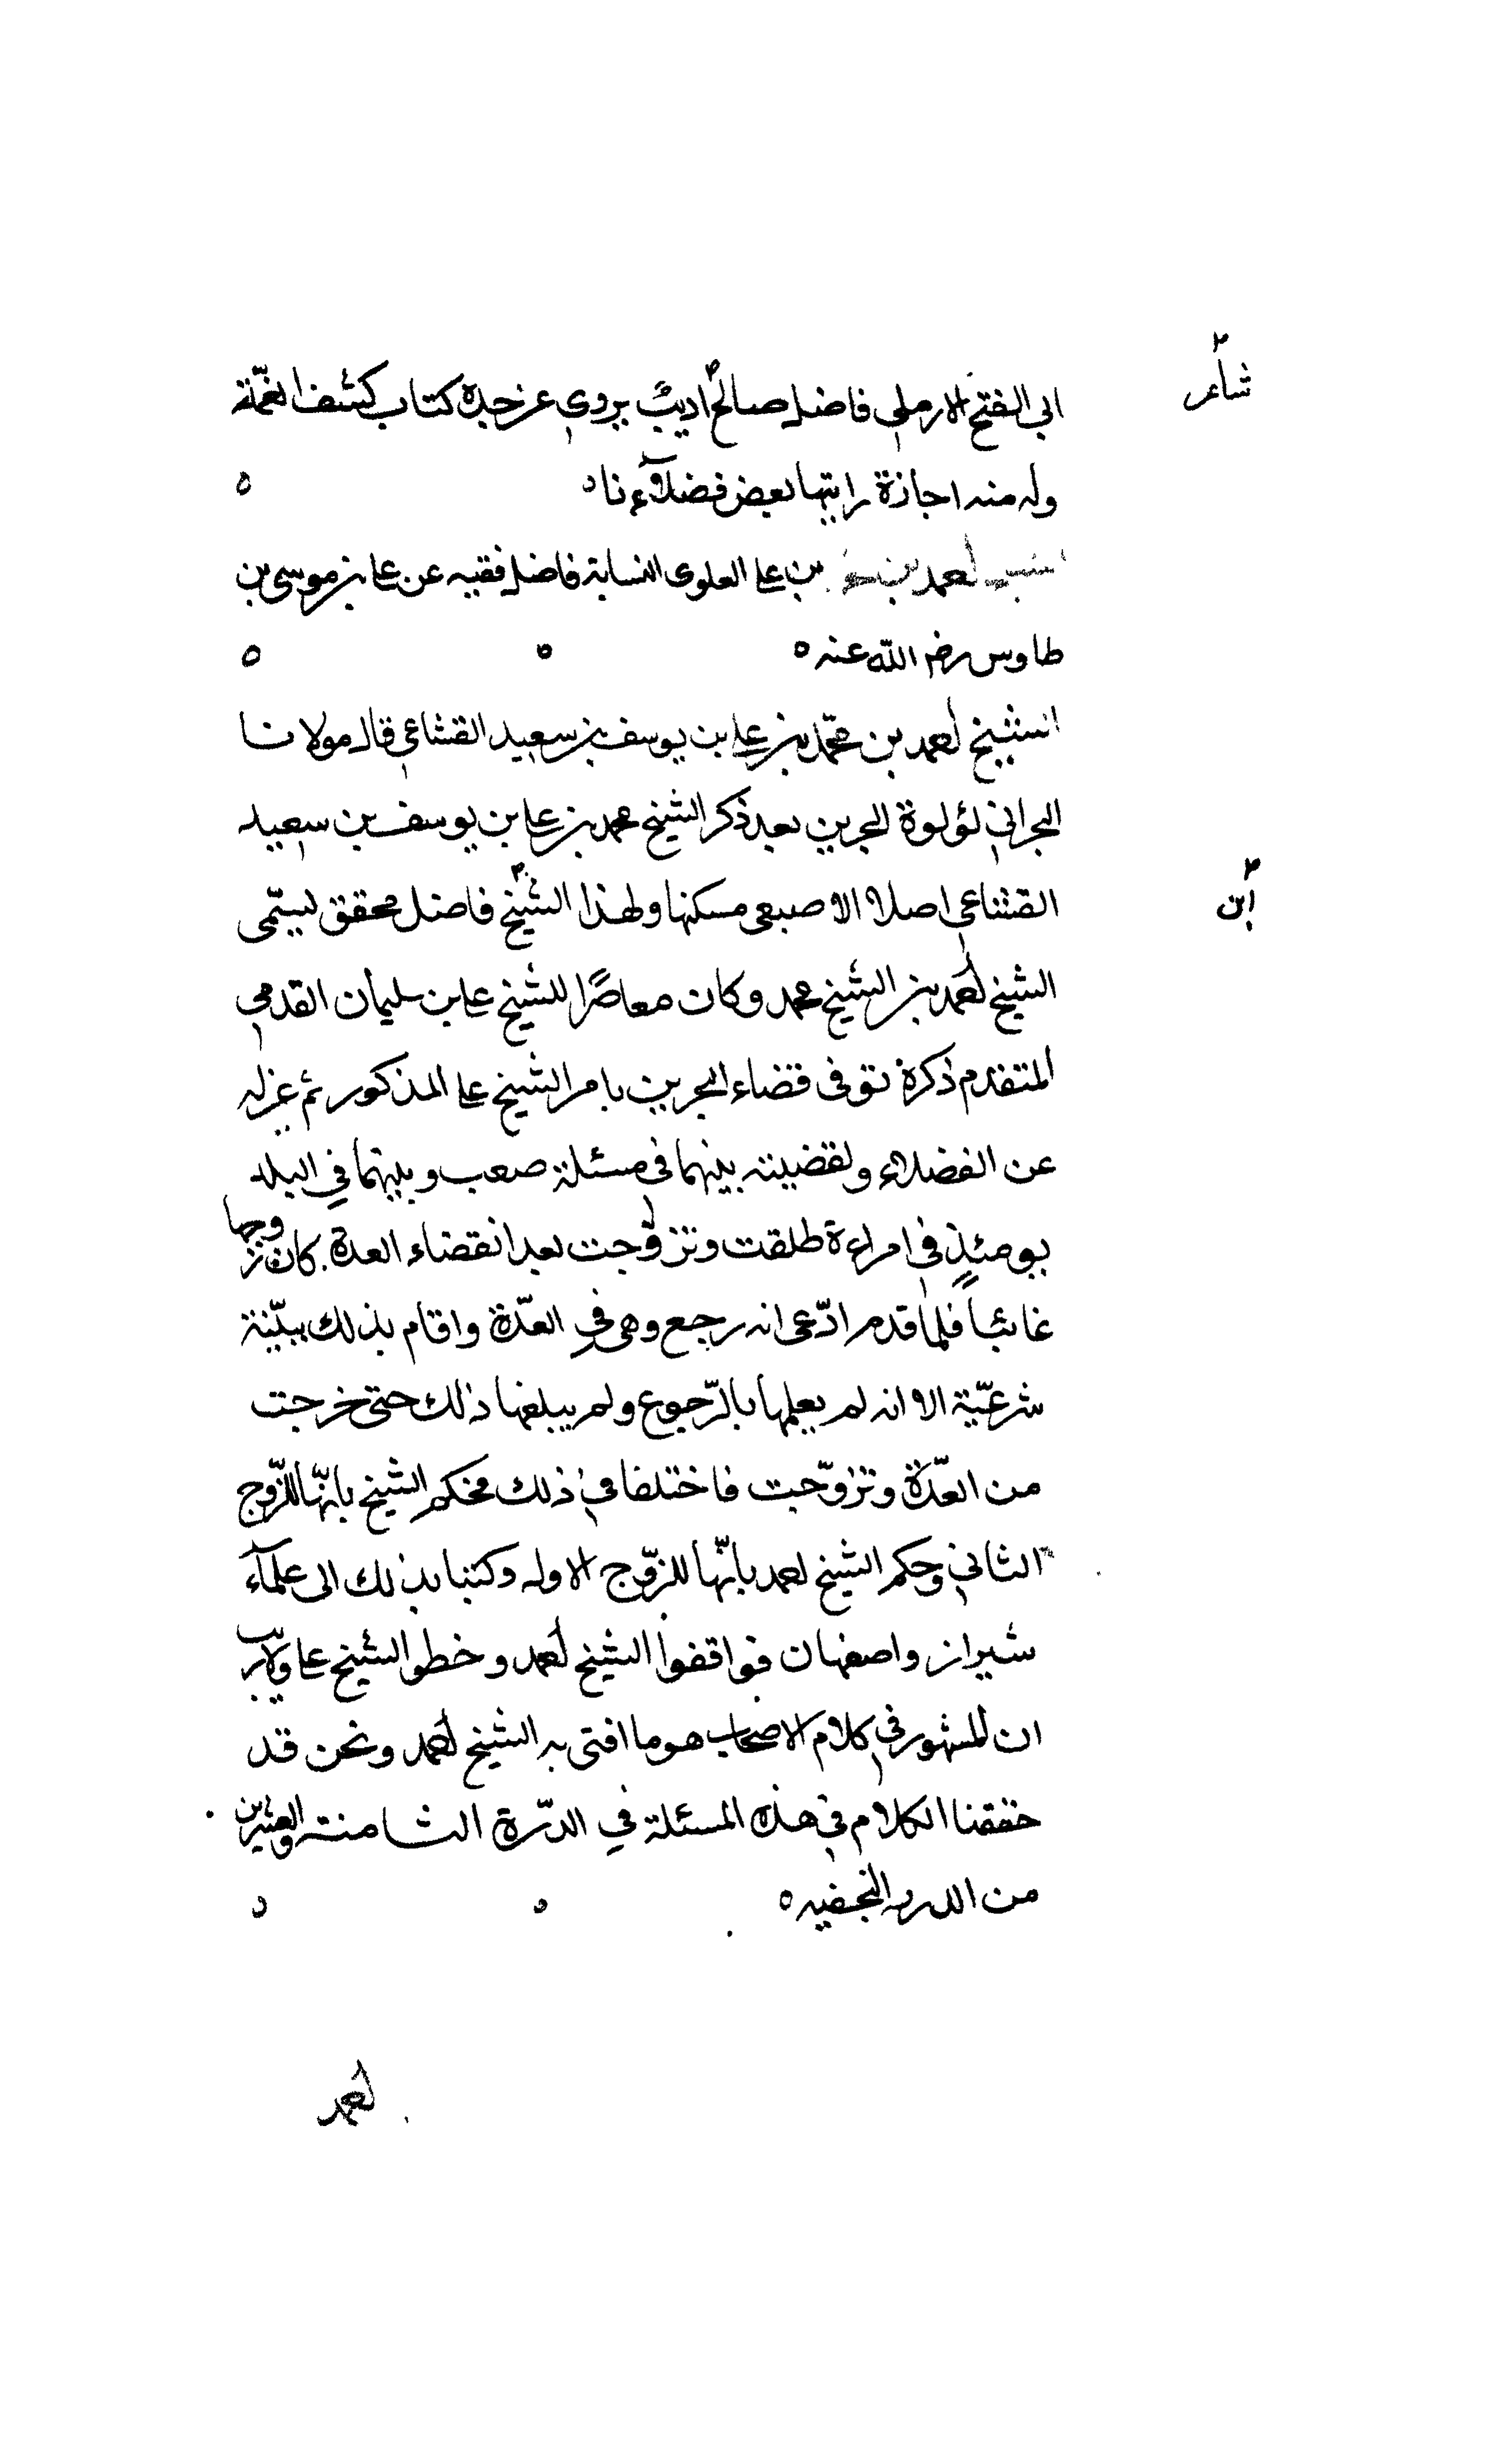 شاعر
ابى الفتح الارملى فاضل صالح اديب يروى عن جده كتاب كشف الغمّة
وله منه اجازة رايتها بعض فضلآء نا
احمد بن بن على العلوى النسابة فاضل فقيه عن على بن موسى بن
طاوس رضى الله عنه
الشيخ احمد بن محمّد بن على بن يوسف بن سعيد القشاعى قال مولانا
البحرانى لؤلوة البحرين بعد ذكر الشيخ محمد بن على بن يوسف بن سعيد
القشاعى اصلا الاصبعى مسكنها ولهذا الشيخ فاضل محقق ليسمّى
ابن
الشيخ احمد بن الشيخ محمد وكان معاصرًا للشيخ على بن سليمان القدمى
المتقدم ذكرة توفى قضاء البحرين بامر الشيخ على المذكور ثم عزله
عن الفضلاء ولقضيته بينهما فى مسئلة صعب وبينهما في البلد
يومئذٍ فى امراءة طلقت وتزوّجت بعد انقضاء العدة كان زوجها
غائباً فلما قدم ادّعى انه رجع وهى في العدّة واقام بذلك ببيّنة
شرعيّة الا انه لم يعلمها بالرّجوع ولم يبلغها ذلك حتى خرجت
من العدّة وتزوّجت فاختلفا فى ذلك فحكم الشيخ بانّها للزّوج
الثانى وحكم الشيخ احمد بانّها للزّوج الاول وكتبا بذلك الى علمآء
شيراز واصفهان فواقفوا الشيخ احمد وخطو الشيخ على ولاريب
ان المشهور فى كلام الاصحاب هو ما افتى به الشيخ احمد ونحن قد
حققنا الكلام فى هذه المسئلة في الدّرة الثامنة والعشرين
من الدرر النجفيه
احمد